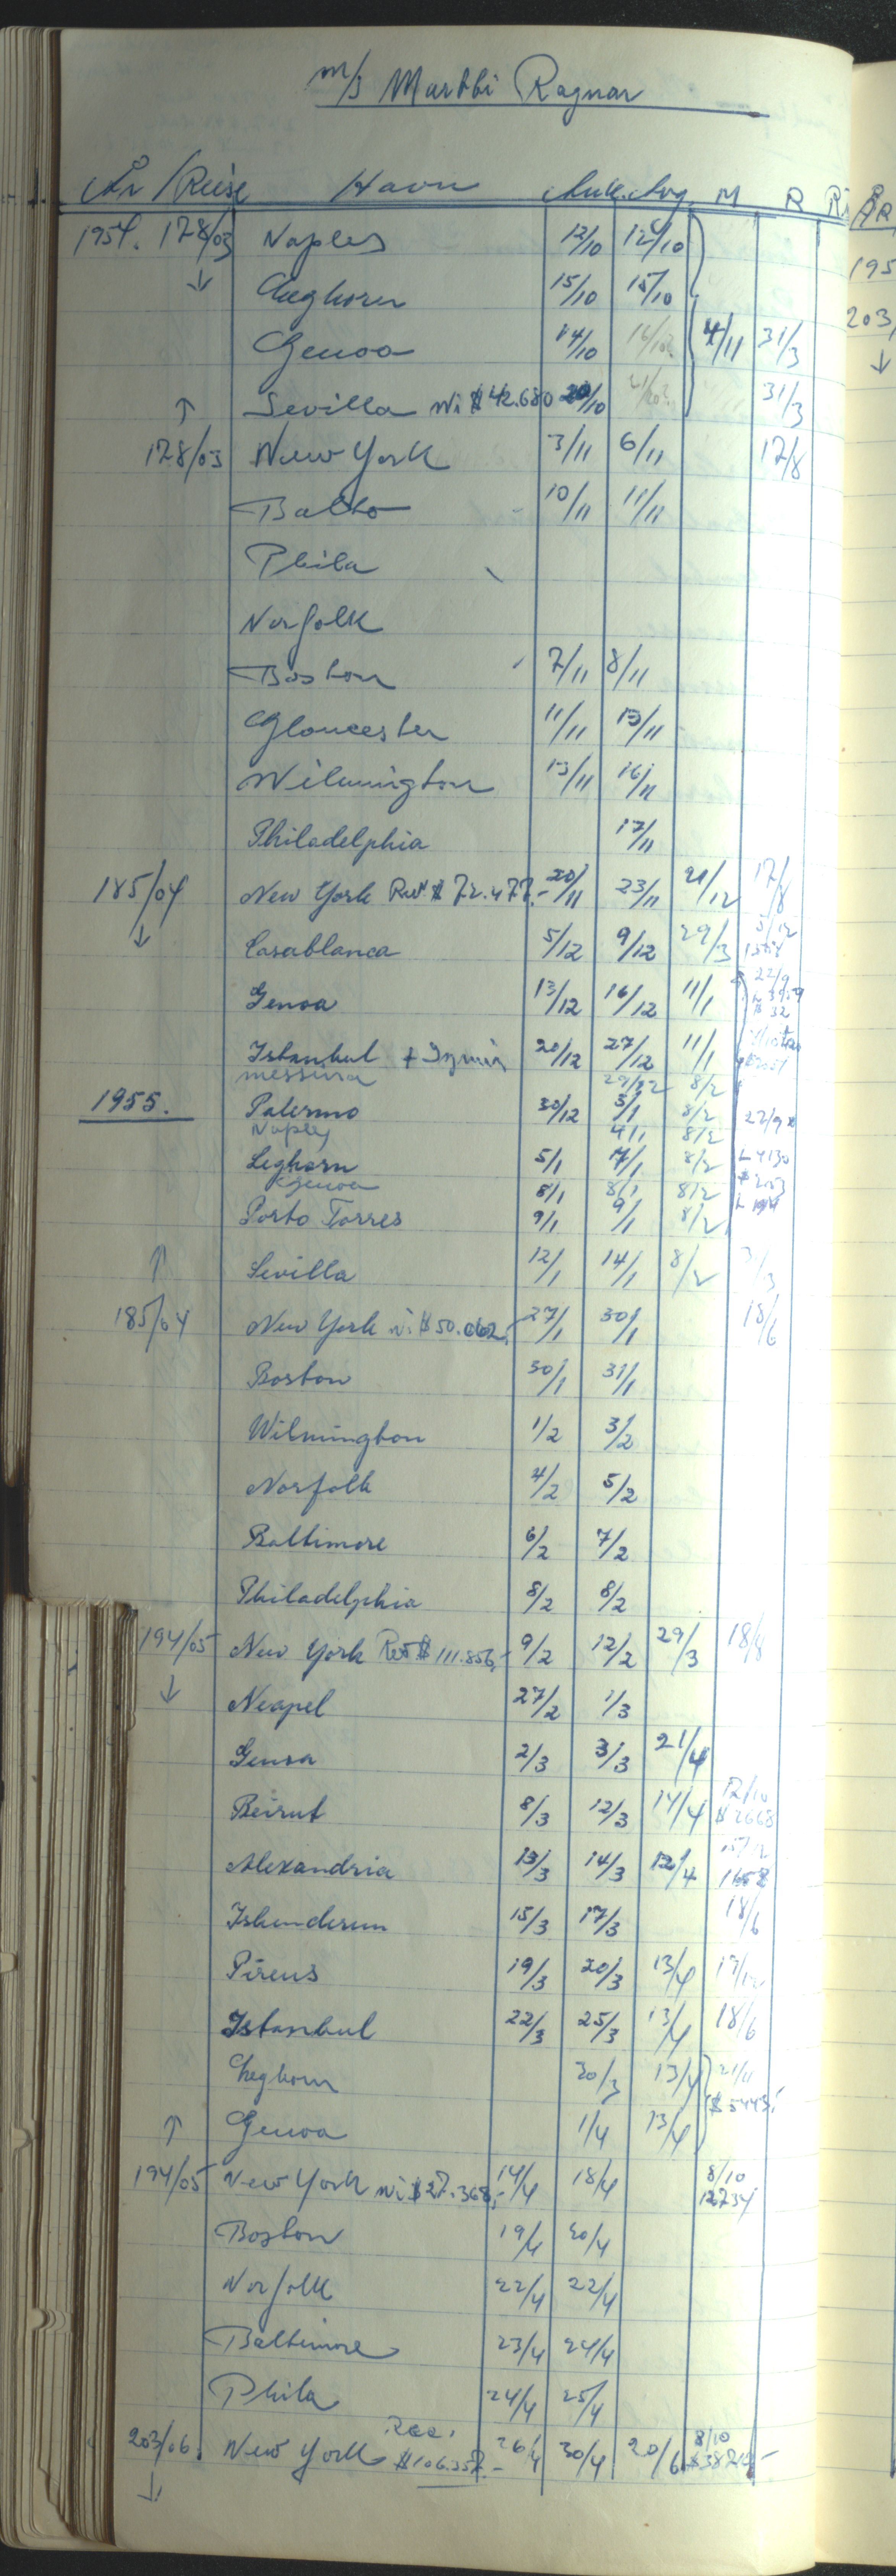 m/s Marthi Ragnar
År / Reise Havn Ank. Avg. M R
1954. 178/03 Naples 12/10 12/10
↓ Leghorn 15/10 15/10
Genoa 14/10 16/10? 4/11 31/3
↑ Sevilla Ni $42.680 20/10 21/10? 31/3
178/03 New York 3/11 6/11 17/8
Balto 10/11 11/11
Phila
Norfolk
Boston 7/11 8/11
Gloucester 11/11 13/11
Wilmington 13/11 16/11
Philadelphia 17/11
185/04 New York Rev $ 72.477.- 20/11 23/11 21/12 17/8
↓ Casablanca 5/12 9/12 29/3 5/12
Genoa 13/12 16/12 11/1 22/9
Istanbul + Izmir 20/12 27/12 11/1
messina 29/12 8/2
1955. Palermo 30/12 3/1 8/2 22/9
Naples 4/1 8/2
Leghorn 5/1 7/1 8/2 L 4130
Genoa 8/1 8/1 8/2
Porto Torres 9/1 9/1 8/2
↑ Sevilla 12/1 14/1 8/2
185/04 New York Ni $50.062,- 27/1 30/1 18/6
Boston 30/1 31/1
Wilmington 1/2 3/2
Norfolk 4/2 5/2
Baltimore 6/2 7/2
Philadelphia 8/2 8/2
194/05 New York Rev $ 111.856,- 9/2 12/2 29/3 18/8
↓ Neapel 27/2 1/3
Genoa 2/3 3/3 21/4
Beirut 8/3 12/3 14/4 12/10 $ 2668
Alexandria 13/3 14/3 12/4 1658
Iskenderun 15/3 17/3 18/6
Pireus 19/3 20/3 13/4 17/12
Istanbul 22/3 25/3 13/4 18/6
Leghorn 30/3 13/4 21/11
↑ Genoa 1/4 13/4 $ 5443,-
194/05 New York Ni $ 27.368,- 14/4 18/4 8/10 12734
Boston 19/4 20/4
Norfolk 22/4 22/4
Baltimore 23/4 24/4
Phila 24/4 25/4
203/06. New York Rev. $106.357.- 26/4 30/4 20/6 8/10
↓
ÅR
195
203
↓